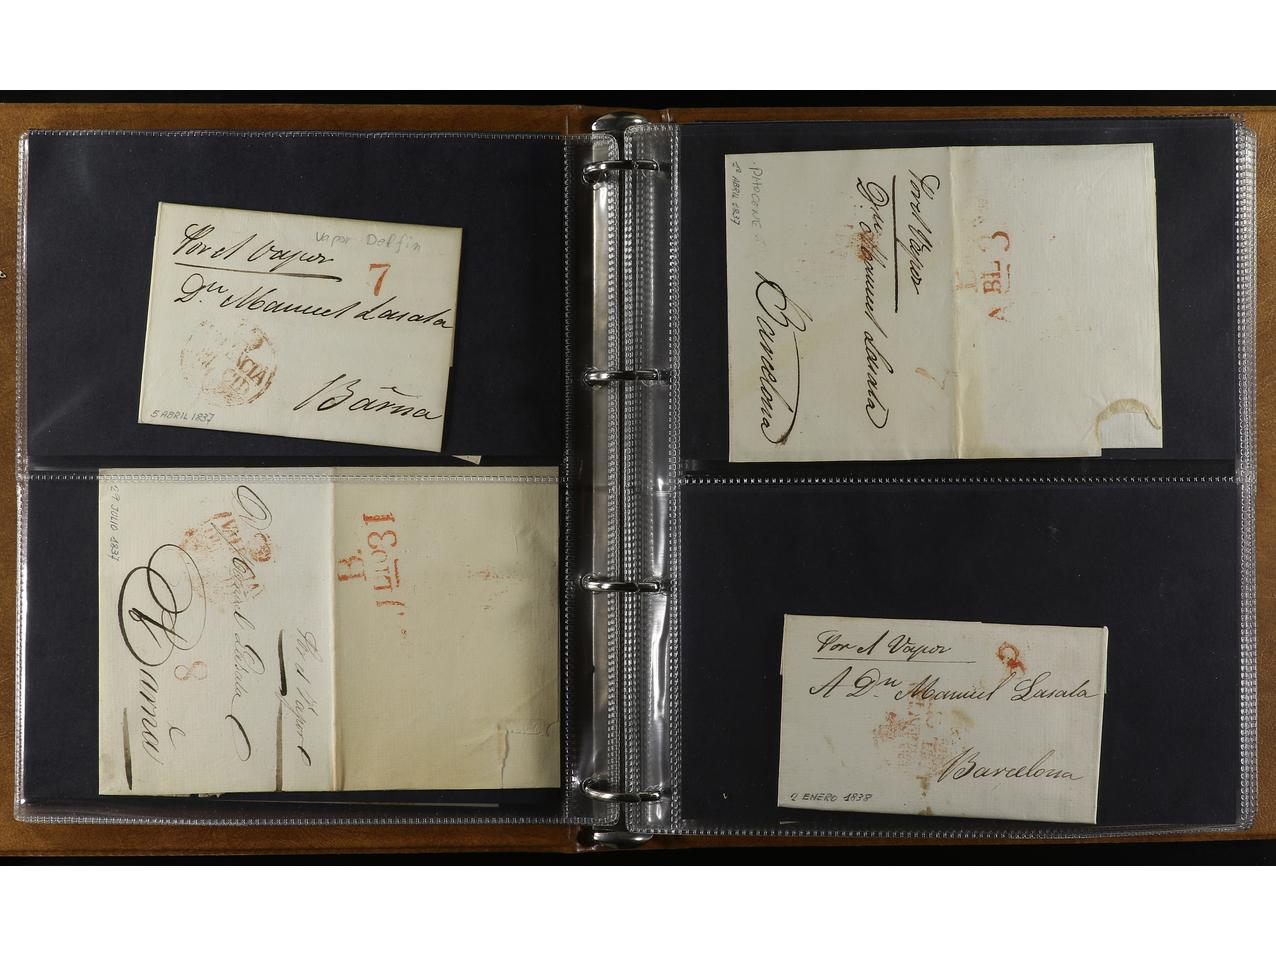 Vapor Delfin
Por el Vapor
7
Dn Manuel Lasala
Barna
5 ABRIL 1837
Por el Vapor
Manuel Lasala
Barna
8
B.
31
29 JULIO 1837
PHOCENE
Por el Vapor
Dn Manuel Lasala
Barcelona
ABL 3
Por el Vapor
9
A Dn Manuel Lasala
Barcelona
2 ENERO 1838